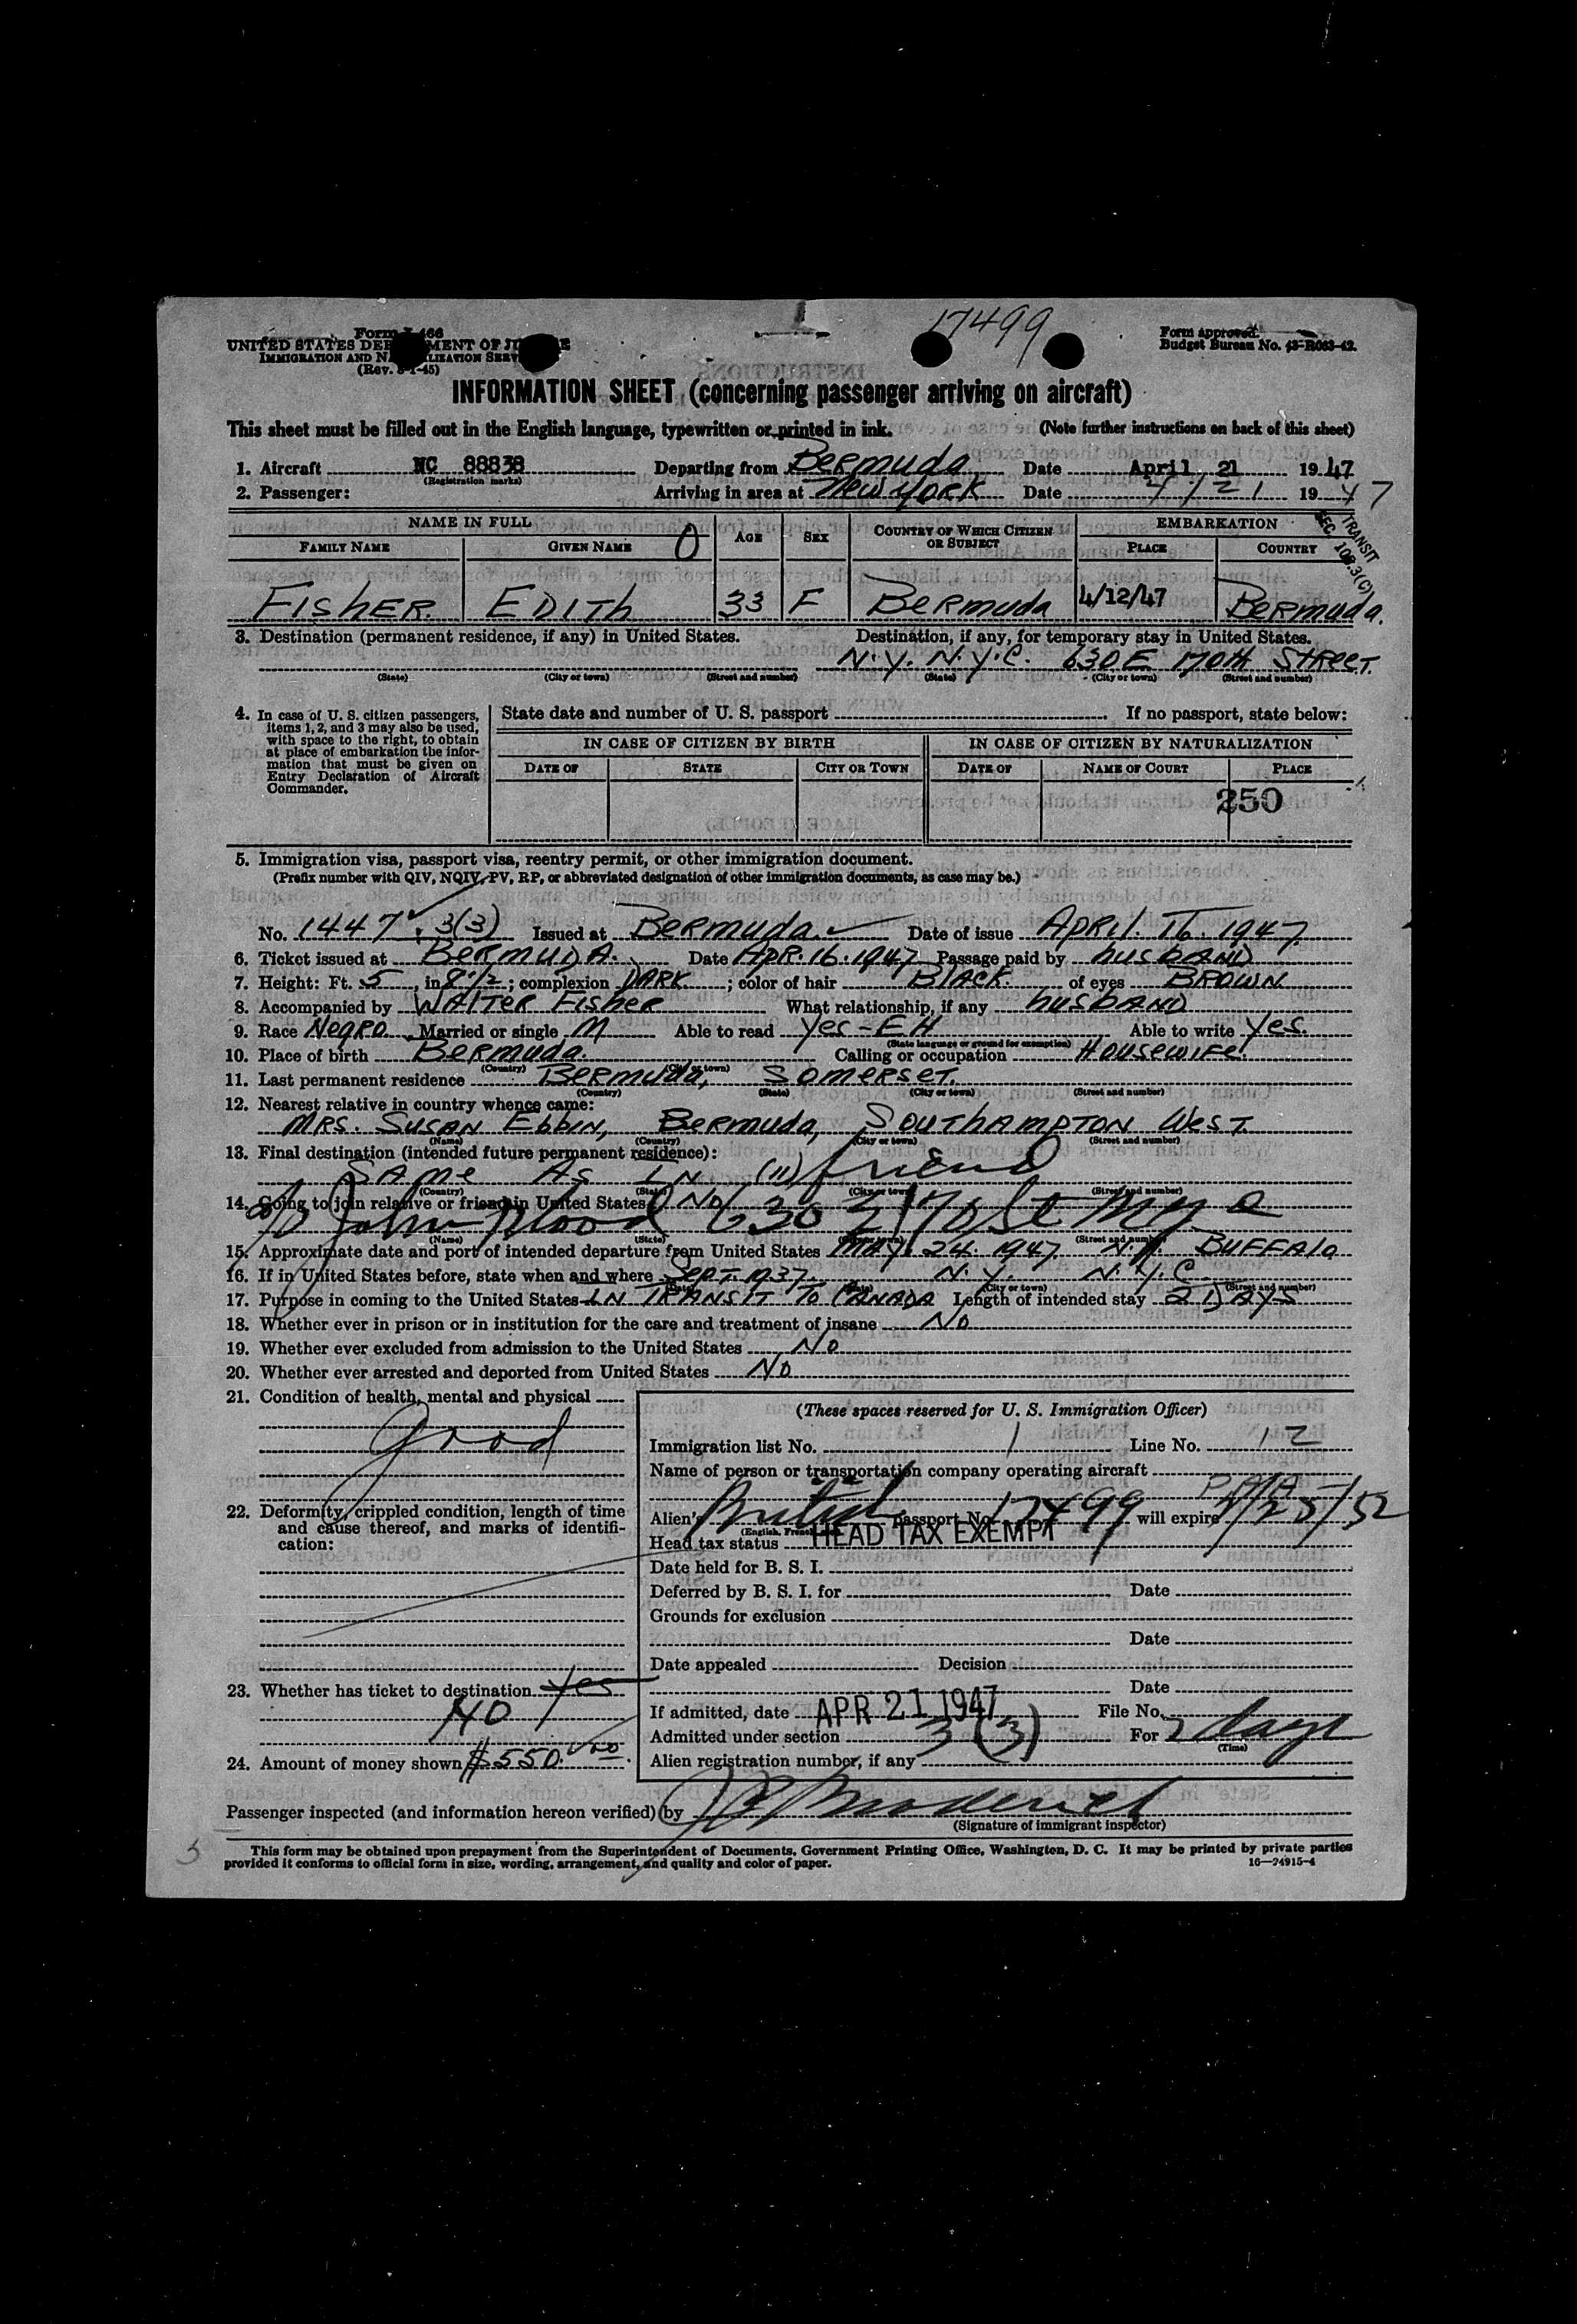 17499
Form I-466
UNITED STATES DEPARTMENT OF JUSTICE
IMMIGRATION AND NATURALIZATION SERVICE
(Rev. 5-1-45)
Form approved.
Budget Bureau No. 43-R063-42.
INFORMATION SHEET (concerning passenger arriving on aircraft)
This sheet must be filled out in the English language, typewritten or printed in ink. (Note further instructions on back of this sheet)
1. Aircraft NC 88838 Departing from Bermuda Date April 21 1947
(Registration marks)
2. Passenger: Arriving in area at New York Date 4/21 1947
TRANSIT
SEC 103.3(C)
NAME IN FULL O AGE SEX COUNTRY OF WHICH CITIZEN OR SUBJECT EMBARKATION
FAMILY NAME GIVEN NAME PLACE COUNTRY
FISHER. EDITH 33 F BERMUDA 4/12/47 BERMUDA.
3. Destination (permanent residence, if any) in United States. Destination, if any, for temporary stay in United States.
N.Y. N.Y.C. 630 E 170th STREET.
(State) (City or town) (Street and number) (State) (City or town) (Street and number)
4. In case of U. S. citizen passengers, items 1, 2, and 3 may also be used, with space to the right, to obtain at place of embarkation the information that must be given on Entry Declaration of Aircraft Commander.
State date and number of U. S. passport If no passport, state below:
IN CASE OF CITIZEN BY BIRTH IN CASE OF CITIZEN BY NATURALIZATION
DATE OF STATE CITY OR TOWN DATE OF NAME OF COURT PLACE
250
5. Immigration visa, passport visa, reentry permit, or other immigration document.
(Prefix number with QIV, NQIV, PV, RP, or abbreviated designation of other immigration documents, as case may be.)
No. 1447 . 3(3) Issued at Bermuda. Date of issue APRIL. 16. 1947.
6. Ticket issued at BERMUDA. Date APR. 16. 1947 Passage paid by husband
7. Height: Ft. 5, in 8 1/2; complexion DARK; color of hair BLACK. of eyes BROWN
8. Accompanied by WALTER FISHER What relationship, if any husband
9. Race Negro Married or single M Able to read Yes-EH Able to write Yes.
(State language or ground for exemption)
10. Place of birth BERMUDA. Calling or occupation HOUSEWIFE.
(Country) (City or town)
11. Last permanent residence BERMUDA, SOMERSET.
(Country) (State) (City or town) (Street and number)
12. Nearest relative in country whence came:
MRS. SUSAN EBBIN, BERMUDA, SOUTHAMPTON WEST.
(Name) (Country) (City or town) (Street and number)
13. Final destination (intended future permanent residence):
SAME AS IN (11) friend
(Country) (State) (City or town) (Street and number)
14. Going to join relative or friend in United States No
John Wood 630 E 170 St N.Y.C
(Name) (State) (City or town) (Street and number)
15. Approximate date and port of intended departure from United States MAY. 24. 1947. N.Y. BUFFALO
16. If in United States before, state when and where SEPT. 1937. N.Y. N.Y.C
(Date) (State) (City or town) (Street and number)
17. Purpose in coming to the United States IN TRANSIT TO CANADA Length of intended stay 2 DAYS
18. Whether ever in prison or in institution for the care and treatment of insane No
19. Whether ever excluded from admission to the United States No
20. Whether ever arrested and deported from United States No
21. Condition of health, mental and physical
Good
22. Deformity, crippled condition, length of time and cause thereof, and marks of identification:
23. Whether has ticket to destination Yes
NO
24. Amount of money shown $550.00.
(These spaces reserved for U. S. Immigration Officer)
Immigration list No. 1 Line No. 12
Name of person or transportation company operating aircraft
PAA
Alien's British passport No. 17499 will expire
(English, French,
Head tax status HEAD TAX EXEMPT
Date held for B. S. I.
Deferred by B. S. I. for Date
Grounds for exclusion
Date
Date appealed Decision
Date
If admitted, date APR 21 1947 File No.
Admitted under section 3 (3) For 2 days
(Time)
Alien registration number, if any
Passenger inspected (and information hereon verified) by
(Signature of immigrant inspector)
This form may be obtained upon prepayment from the Superintendent of Documents, Government Printing Office, Washington, D. C. It may be printed by private parties
provided it conforms to official form in size, wording, arrangement, and quality and color of paper.
16—24915-4